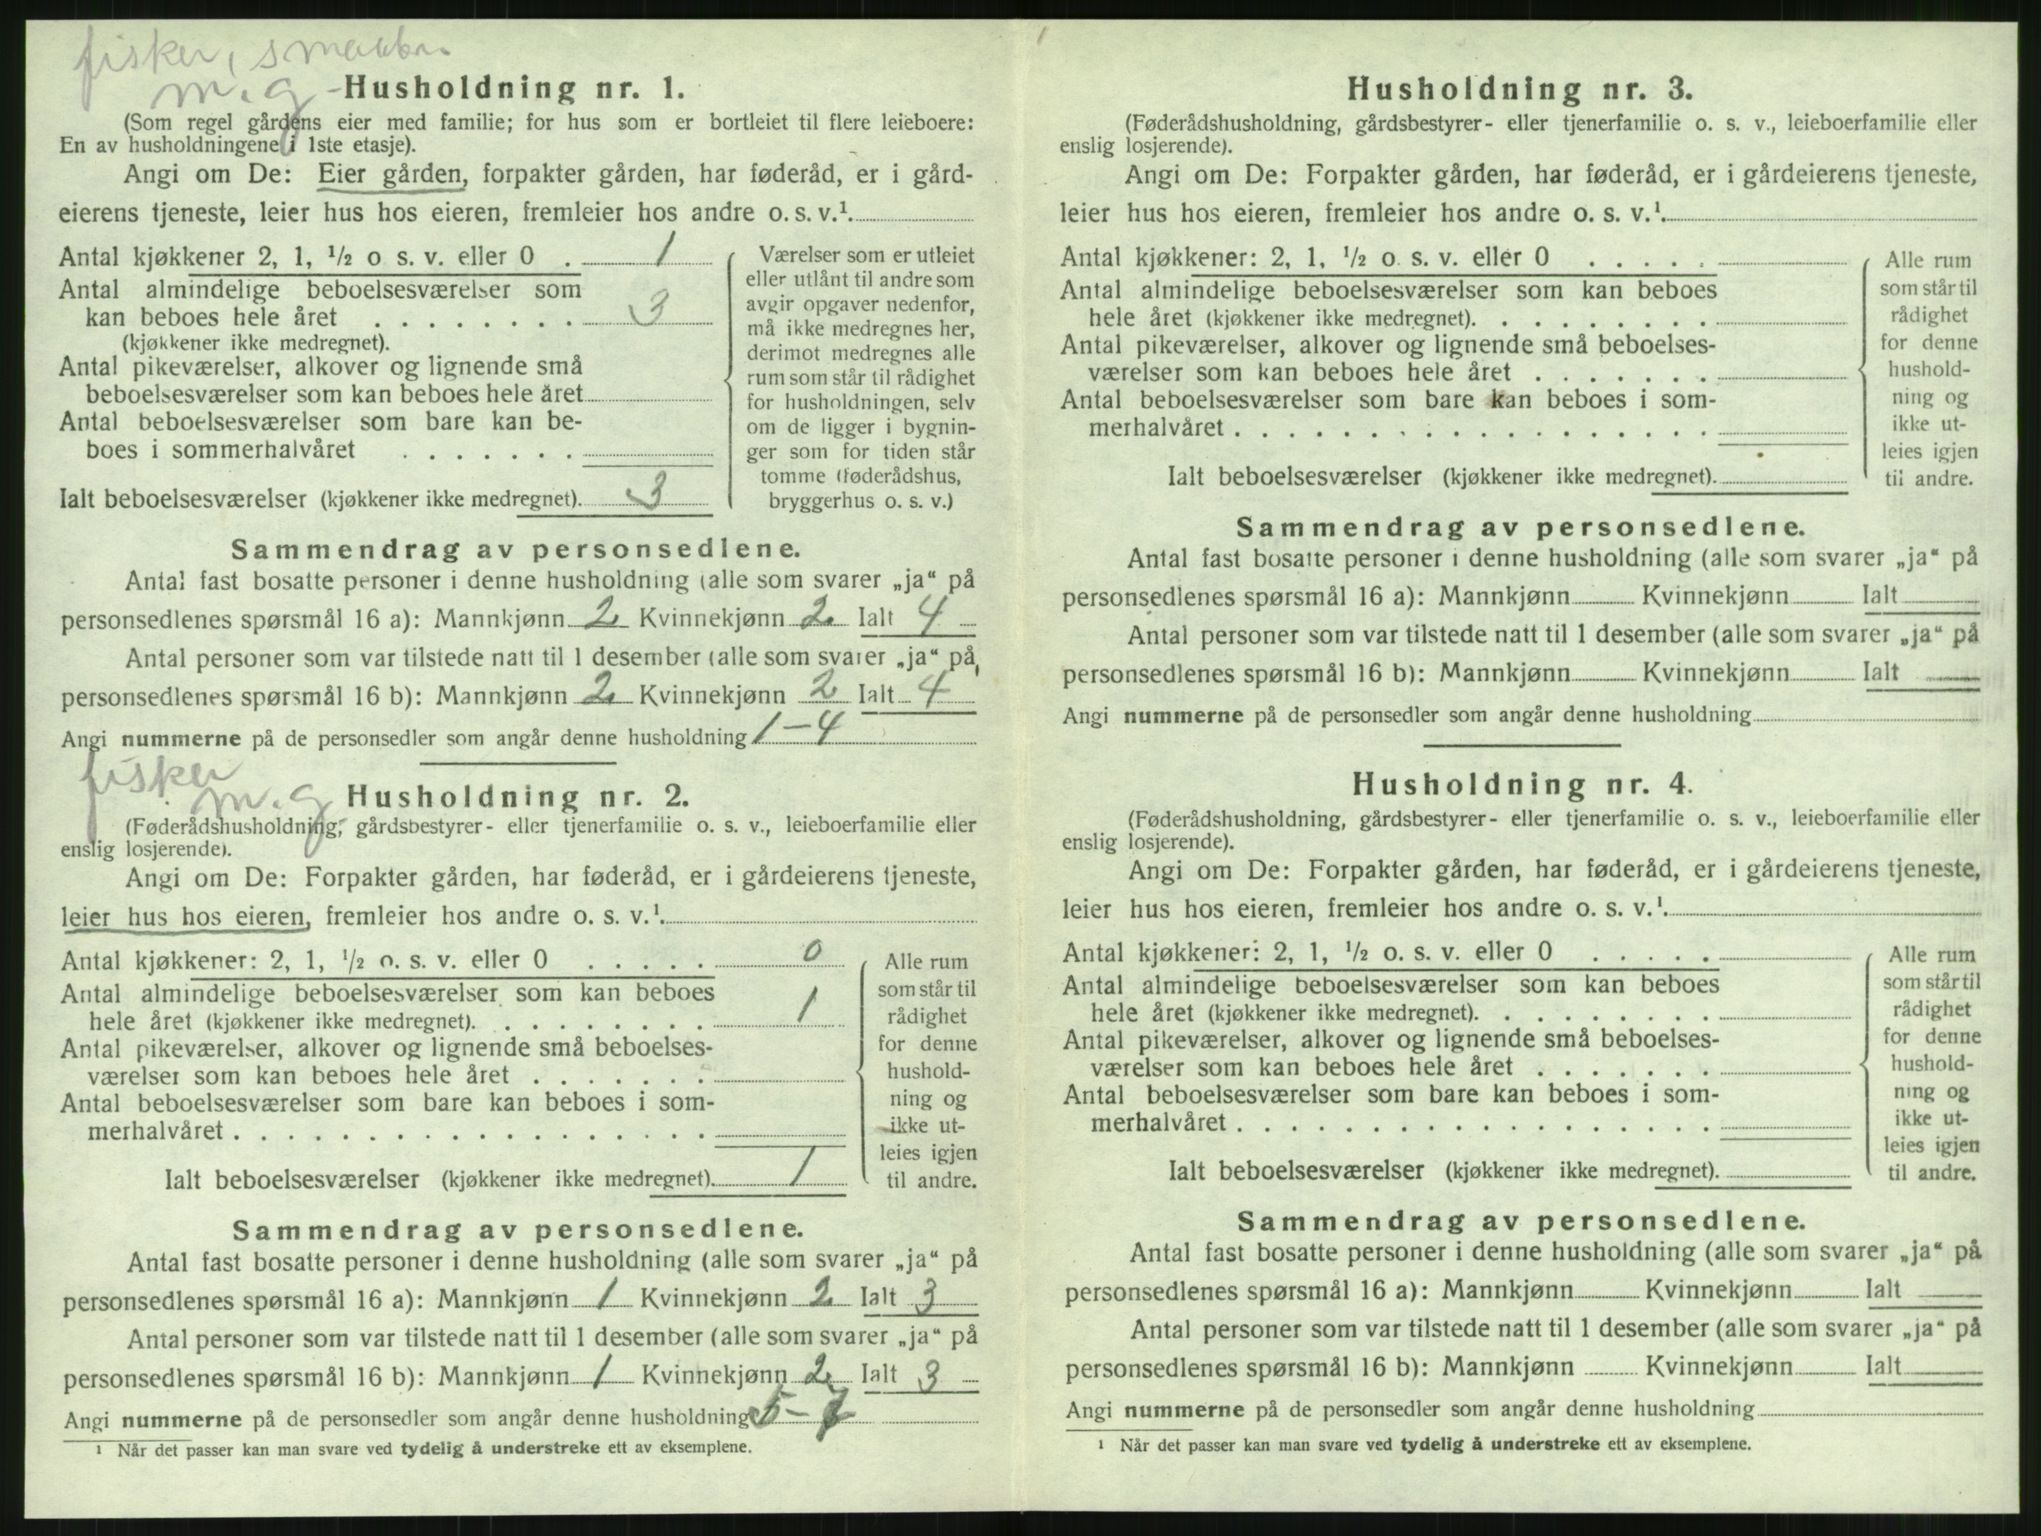 fisker, smaabr.
m.g - Husholdning nr. 1.
(Som regel gårdens eier med familie; for hus som er bortleiet til flere leieboere:
En av husholdningene i 1ste etasje).
Angi om De: Eier gården, forpakter gården, har føderåd, er i gård-
eierens tjeneste, leier hus hos eieren, fremleier hos andre o. s. v.¹.
Antal kjøkkener 2, 1, ½ o s. v. eller 0 . 1
Antal almindelige beboelsesværelser som
kan beboes hele året . . . . . . . . 3
(kjøkkener ikke medregnet).
Antal pikeværelser, alkover og lignende små
beboelsesværelser som kan beboes hele året
Antal beboelsesværelser som bare kan be-
boes i sommerhalvåret . . . . . . .
Ialt beboelsesværelser (kjøkkener ikke medregnet). 3
Værelser som er utleiet
eller utlånt til andre som
avgir opgaver nedenfor,
må ikke medregnes her,
derimot medregnes alle
rum som står til rådighet
for husholdningen, selv
om de ligger i bygnin-
ger som for tiden står
tomme (føderådshus,
bryggerhus o. s. v.)
Sammendrag av personsedlene.
Antal fast bosatte personer i denne husholdning (alle som svarer „ja“ på
personsedlenes spørsmål 16 a): Mannkjønn 2 Kvinnekjønn 2 Ialt 4
Antal personer som var tilstede natt til 1 desember (alle som svarer „ja“ på
personsedlenes spørsmål 16 b): Mannkjønn 2 Kvinnekjønn 2 Ialt 4
Angi nummerne på de personsedler som angår denne husholdning 1-4
fisker
m.g Husholdning nr. 2.
(Føderådshusholdning, gårdsbestyrer- eller tjenerfamilie o. s. v., leieboerfamilie eller
enslig losjerende).
Angi om De: Forpakter gården, har føderåd, er i gårdeierens tjeneste,
leier hus hos eieren, fremleier hos andre o. s. v.¹.
Antal kjøkkener: 2, 1, ½ o. s. v. eller 0 . . . . . 0
Antal almindelige beboelsesværelser som kan beboes
hele året (kjøkkener ikke medregnet). . . . . . . . . 1
Antal pikeværelser, alkover og lignende små beboelses-
værelser som kan beboes hele året . . . . . . .
Antal beboelsesværelser som bare kan beboes i som-
merhalvåret . . . . . . . . . . . . . . . . . .
Ialt beboelsesværelser (kjøkkener ikke medregnet). 1
Alle rum
som står til
rådighet
for denne
hushold-
ning og
ikke ut-
leies igjen
til andre.
Sammendrag av personsedlene.
Antal fast bosatte personer i denne husholdning (alle som svarer „ja“ på
personsedlenes spørsmål 16 a): Mannkjønn 1 Kvinnekjønn 2 Ialt 3
Antal personer som var tilstede natt til 1 desember (alle som svarer „ja“ på
personsedlenes spørsmål 16 b): Mannkjønn 1 Kvinnekjønn 2 Ialt 3
Angi nummerne på de personsedler som angår denne husholdning 5-7
¹ Når det passer kan man svare ved tydelig å understreke ett av eksemplene.
Husholdning nr. 3.
(Føderådshusholdning, gårdsbestyrer- eller tjenerfamilie o. s. v., leieboerfamilie eller
enslig losjerende).
Angi om De: Forpakter gården, har føderåd, er i gårdeierens tjeneste,
leier hus hos eieren, fremleier hos andre o. s. v.¹.
Antal kjøkkener: 2, 1, ½ o. s. v. eller 0 . . . . .
Antal almindelige beboelsesværelser som kan beboes
hele året (kjøkkener ikke medregnet). . . . . . . . .
Antal pikeværelser, alkover og lignende små beboelses-
værelser som kan beboes hele året . . . . . . .
Antal beboelsesværelser som bare kan beboes i som-
merhalvåret . . . . . . . . . . . . . . . . . .
Ialt beboelsesværelser (kjøkkener ikke medregnet).
Alle rum
som står til
rådighet
for denne
hushold-
ning og
ikke ut-
leies igjen
til andre.
Sammendrag av personsedlene.
Antal fast bosatte personer i denne husholdning (alle som svarer „ja“ på
personsedlenes spørsmål 16 a): Mannkjønn Kvinnekjønn Ialt
Antal personer som var tilstede natt til 1 desember (alle som svarer „ja“ på
personsedlenes spørsmål 16 b): Mannkjønn Kvinnekjønn Ialt
Angi nummerne på de personsedler som angår denne husholdning
Husholdning nr. 4.
(Føderådshusholdning, gårdsbestyrer- eller tjenerfamilie o. s. v., leieboerfamilie eller
enslig losjerende).
Angi om De: Forpakter gården, har føderåd, er i gårdeierens tjeneste,
leier hus hos eieren, fremleier hos andre o. s. v.¹.
Antal kjøkkener: 2, 1, ½ o. s. v. eller 0 . . . . .
Antal almindelige beboelsesværelser som kan beboes
hele året (kjøkkener ikke medregnet). . . . . . . . .
Antal pikeværelser, alkover og lignende små beboelses-
værelser som kan beboes hele året . . . . . . .
Antal beboelsesværelser som bare kan beboes i som-
merhalvåret . . . . . . . . . . . . . . . . . .
Ialt beboelsesværelser (kjøkkener ikke medregnet).
Alle rum
som står til
rådighet
for denne
hushold-
ning og
ikke ut-
leies igjen
til andre.
Sammendrag av personsedlene.
Antal fast bosatte personer i denne husholdning (alle som svarer „ja“ på
personsedlenes spørsmål 16 a): Mannkjønn Kvinnekjønn Ialt
Antal personer som var tilstede natt til 1 desember (alle som svarer „ja“ på
personsedlenes spørsmål 16 b): Mannkjønn Kvinnekjønn Ialt
Angi nummerne på de personsedler som angår denne husholdning
¹ Når det passer kan man svare ved tydelig å understreke ett av eksemplene.